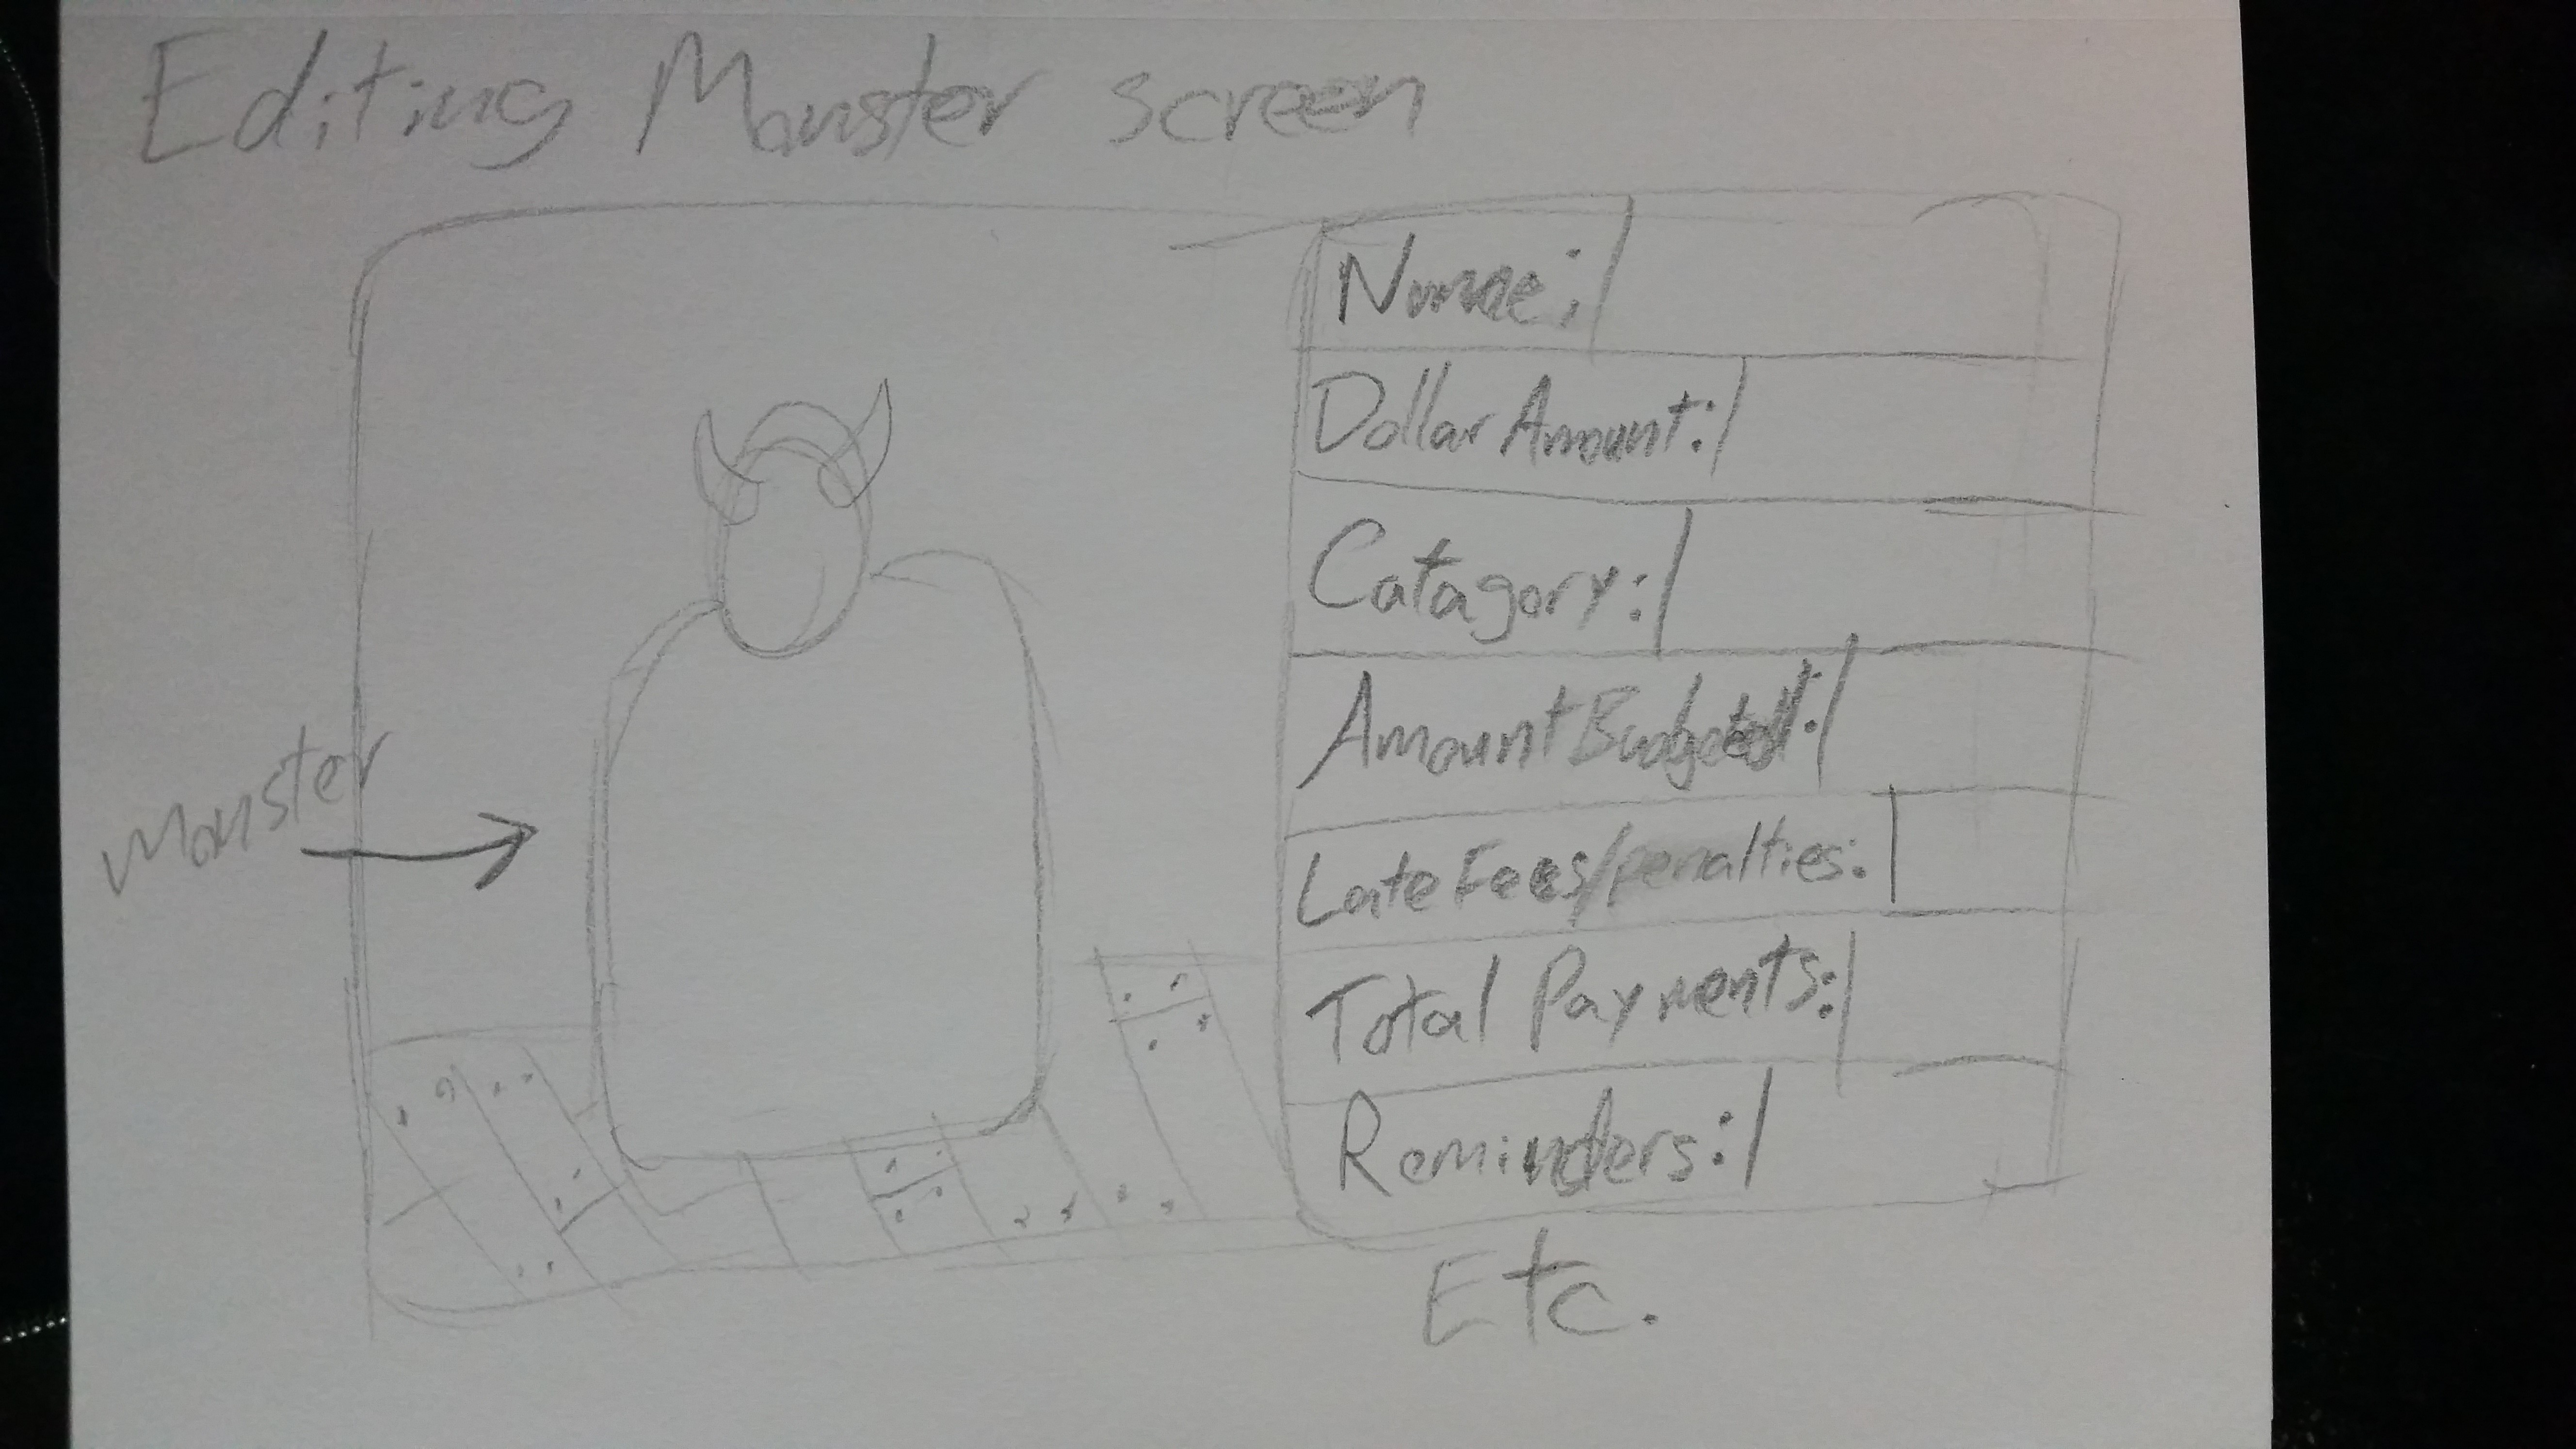 Editing Monster screen
Name:
Dollar Amount:
Catagory:
Amount Budgeted:
Monster
Late Fees/penalties:
Total Payments:
Reminders:
Etc.